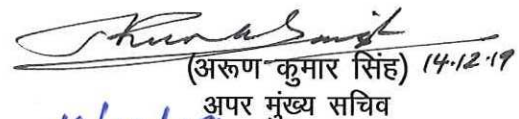 (अरूण कुमार सिंह) 14.12.19
अपर मुंख्य सचिव